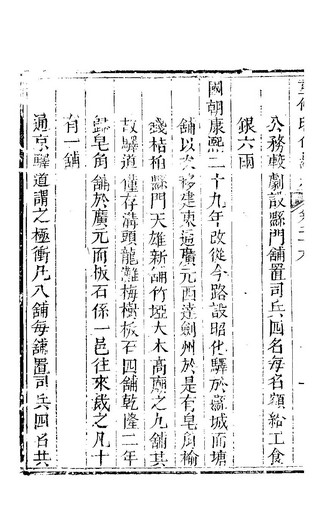 公務較劇設縣門舖置司兵四名每名額給工食
銀六兩
國朝康熙二十九年改從今路設昭化驛於舊城而塘
舖以次移建東迤廣元西達劍州於是有皂角榆
錢桔柏縣門天雄新舖竹埡大木高廟之九舖其
故驛道僅存溝頭龍灘梅樹板石四舖乾隆二年
歸皂角舖於廣元而板石係一邑往來歲之凡十
有一舖
通京驛道謂之極衝凡八舖每舖置司兵四名共